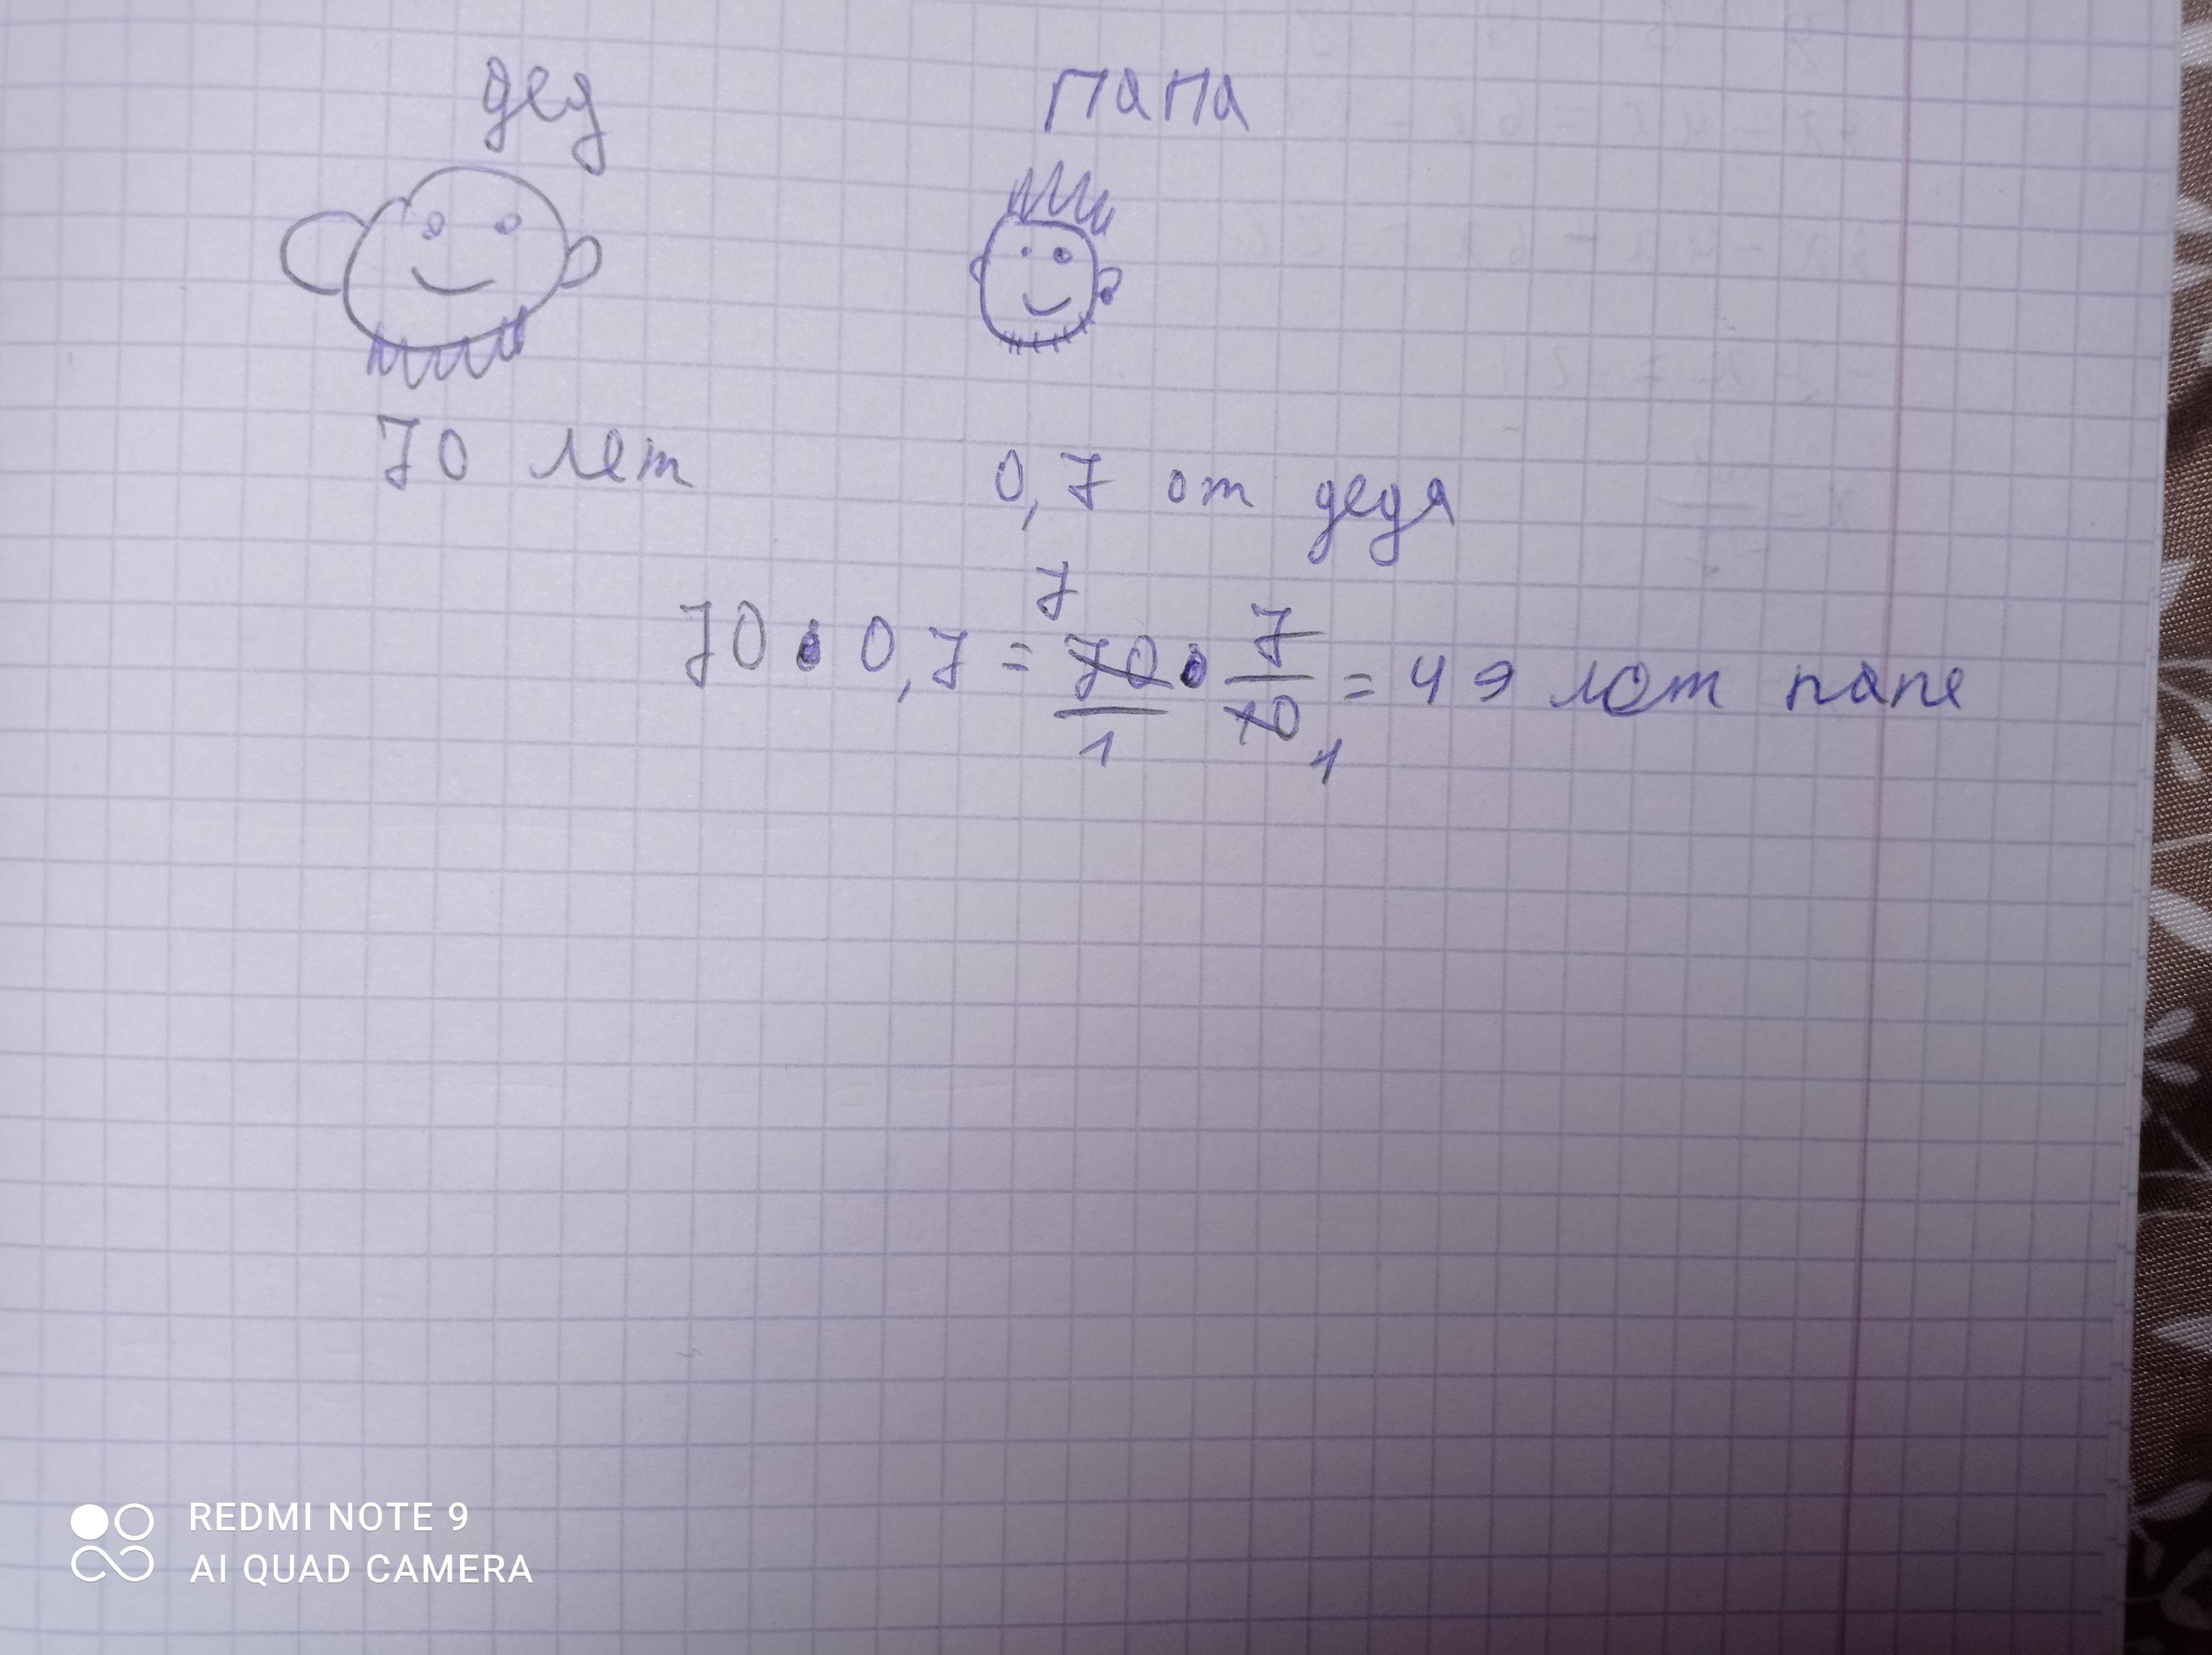 дед папа
70 лет 0,7 от дедя
70 • 0,7 = 70/1 • 7/10 = 49 лет папе
7 1
REDMI NOTE 9
AI QUAD CAMERA